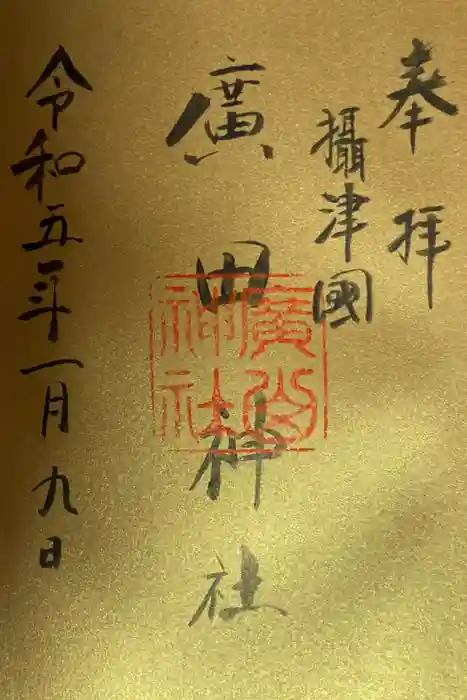 奉拝
攝津國
廣田神社
廣田神社
令和五年一月九日